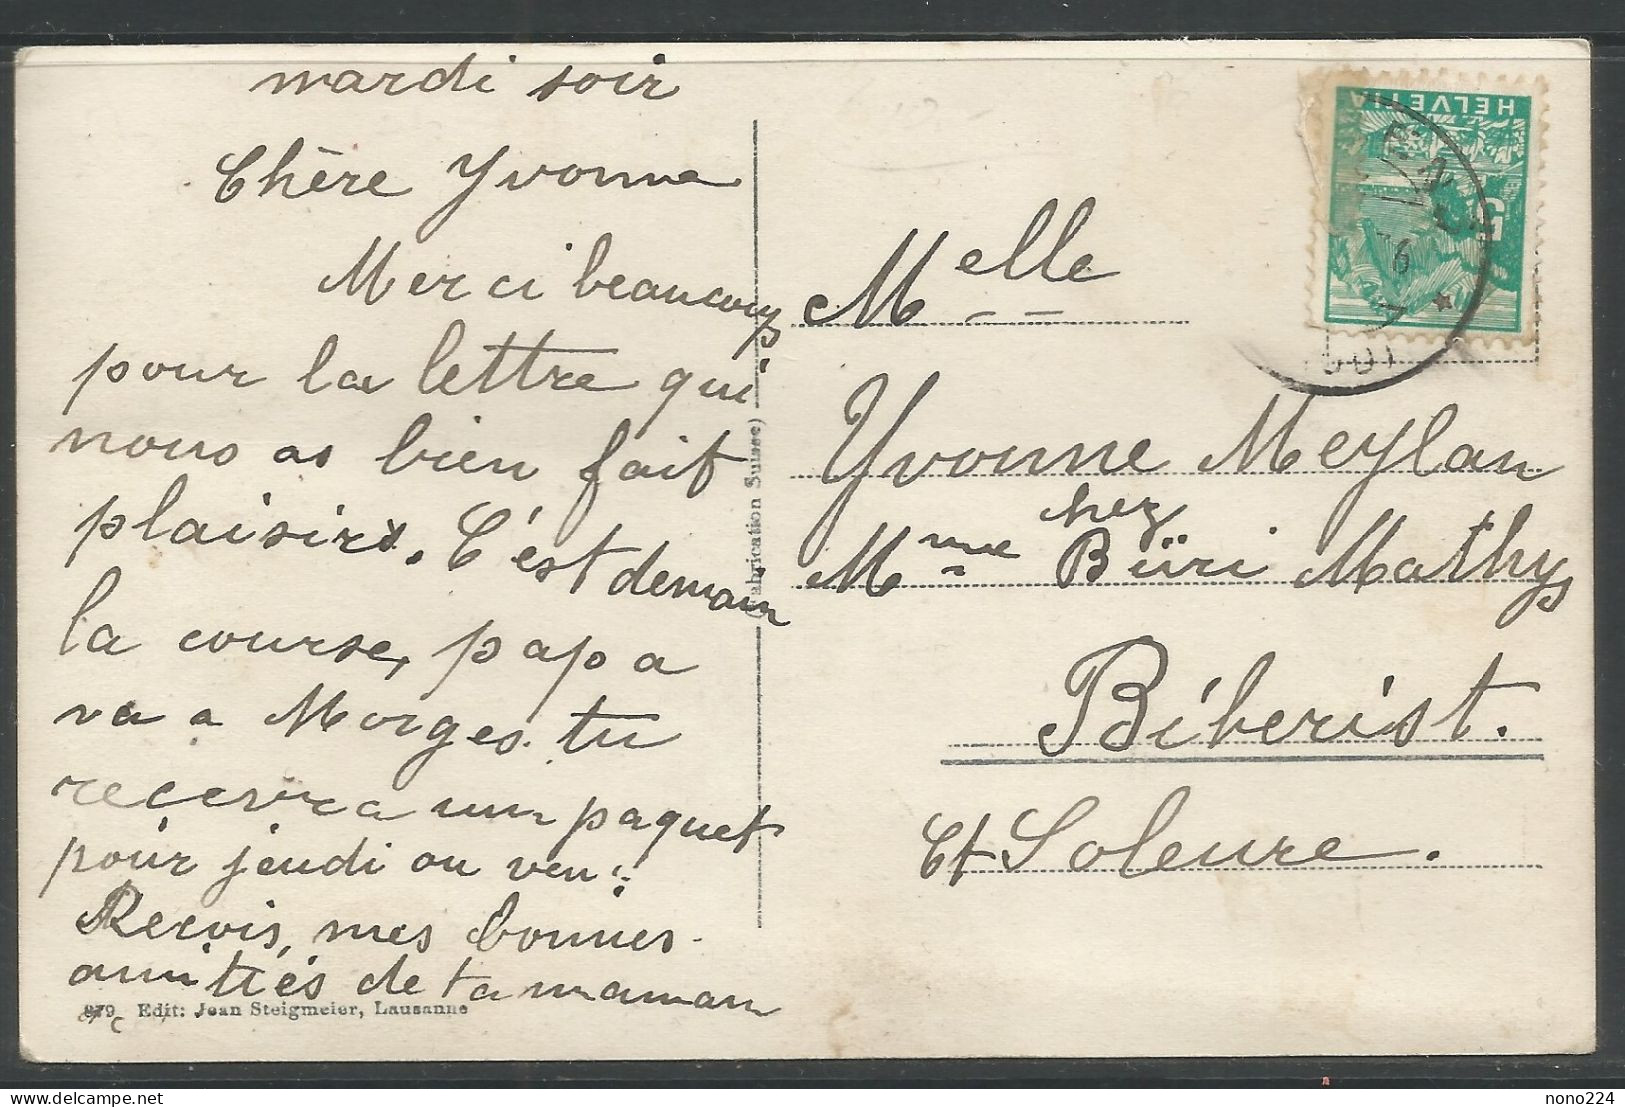 mardi soir
Chère Yvonne
Merci beaucoup
pour la lettre qui
nous as bien fait
plaisirs. C'est demain
la course, papa
va a Morges. tu
recevra un paquet
pour jeudi ou ven:
Recois, mes bonnes
amitiés de ta maman
979 Edit: Jean Steigmeier, Lausanne
(Fabrication Suisse)
HELVETIA
5
Melle
Yvonne Meylan
chez
Mme Büri Mathys
Biberist.
Ct Soleure.
nono224